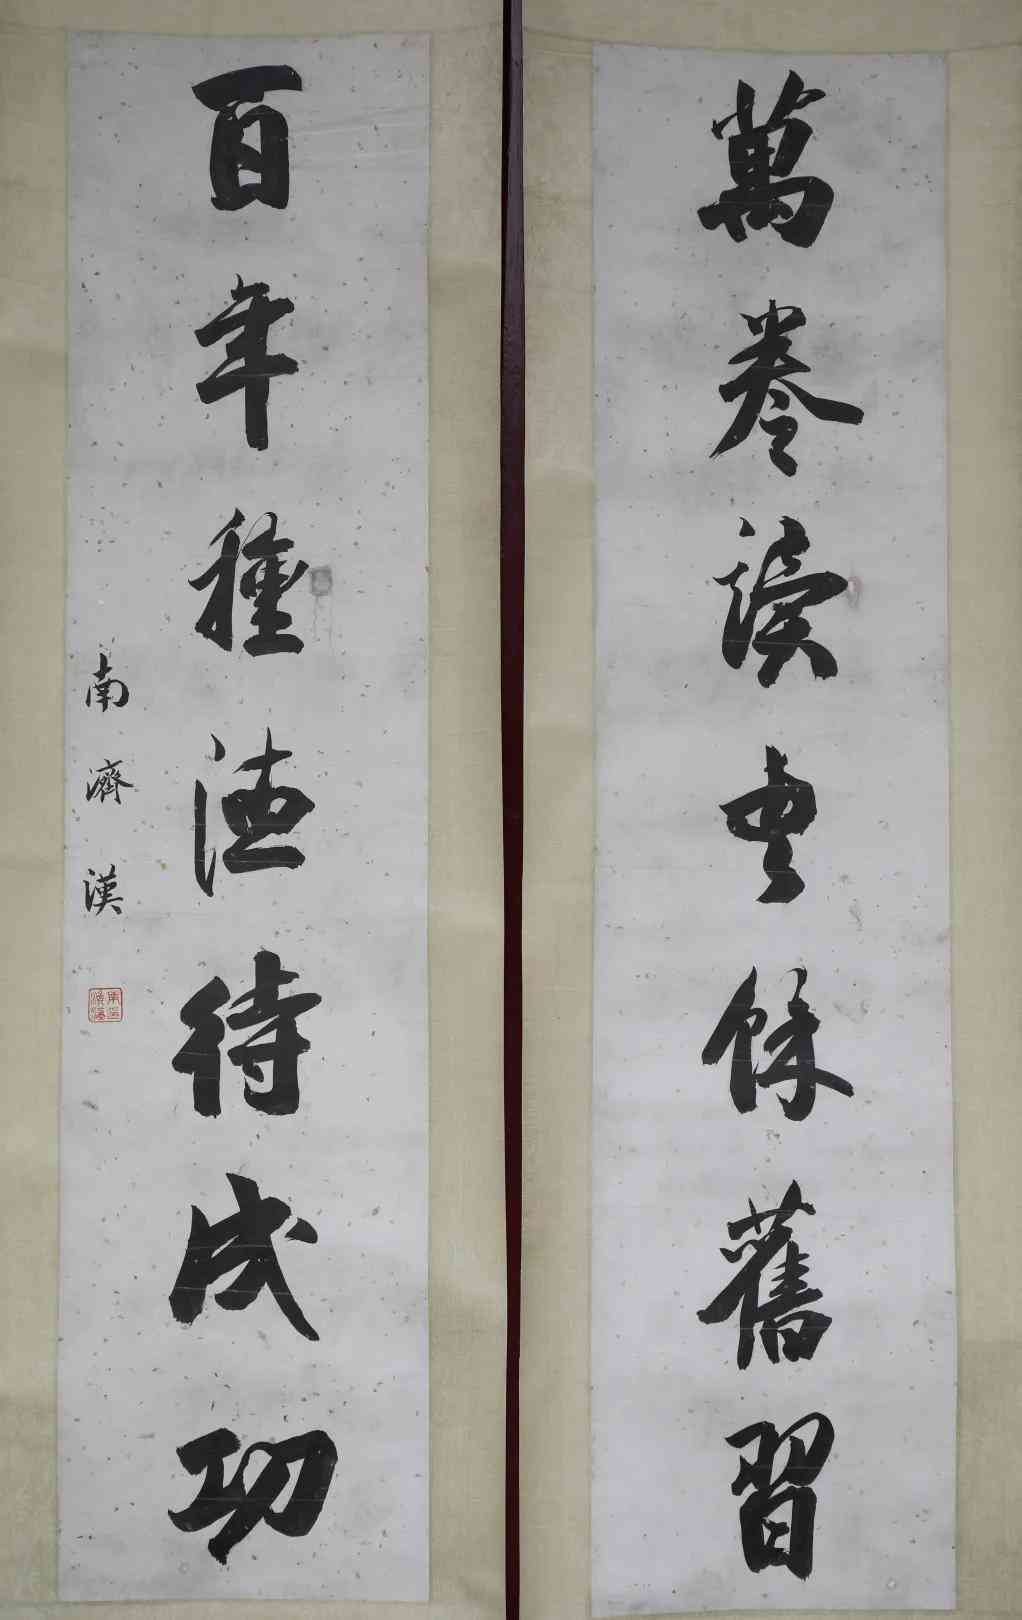 萬卷讀書餘舊習
百年種德待成功
南濟漢